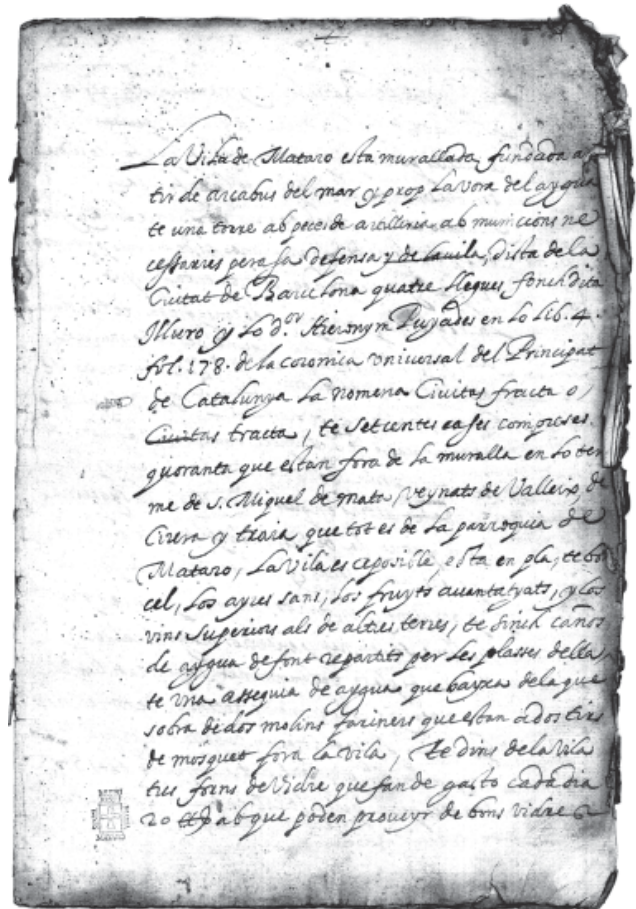 La Vila de Mataro esta murallada, fundada a
tir de arcabus del mar y prop la vora del aygua
te una torre ab peces de artilleria, ab municions ne
cessaries pera sa defensa y de la vila, dista de la
Ciutat de Barcelona quatre llegues, fonch dita
Illuro y lo d.or Hieronym Pujades en lo lib. 4.
fol. 178. de la coronica universal del Principat
de Catalunya la nomena Civitas fracta o,
Civitas tracta, te setcentes cases compreses
quoranta que estan fora de la muralla en lo ter
me de S. Miquel de mata, veynats de Valleix, de
Cirera y traia que tot es de la parroquia de
Mataro, La Vila es esta en pla, te bo
cel, los ayres sans, los fruyts auantatjats, y los
vins superiors als de altres terres, te sinch caños
de aygua de font repartits per les plasses della
te una assequia de aygua que bayxa dela que
sobra de dos molins fariners que estan a dos tirs
de mosquet fora la vila, te dins de la vila
tres forns de vidre que fan de gasto cada dia
20 ab que poden proueyr de bons vidres